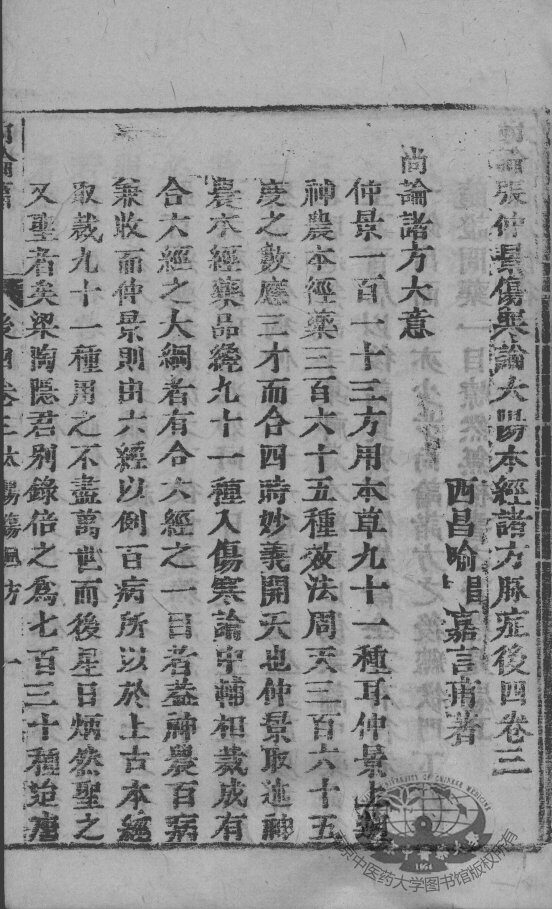 尚論張仲景傷寒論太陽本經諸方脉症後四卷三
西昌喻昌嘉言甫著
尚論諸方大意
仲景一百一十三方用本草九十一種耳仲景上遡
神農本經藥三百六十五種效法周天三百六十五
度之數應三才而合四時妙義開天也仲景取述神
農本經藥品纔九十一種入傷寒論中輔相裁成有
合六經之大綱者有合六經之一目者葢神農百病
兼收而仲景則由六經以例百病所以於上古本經
取裁九十一種用之不盡萬世而後星日炳然聖之
又聖者矣梁陶隱君別錄倍之爲七百三十種迨唐
後四卷三 太陽傷風方 一
北京中医药大学图书馆版权所有
UNIVERSITY OF CHINESE MEDICINE